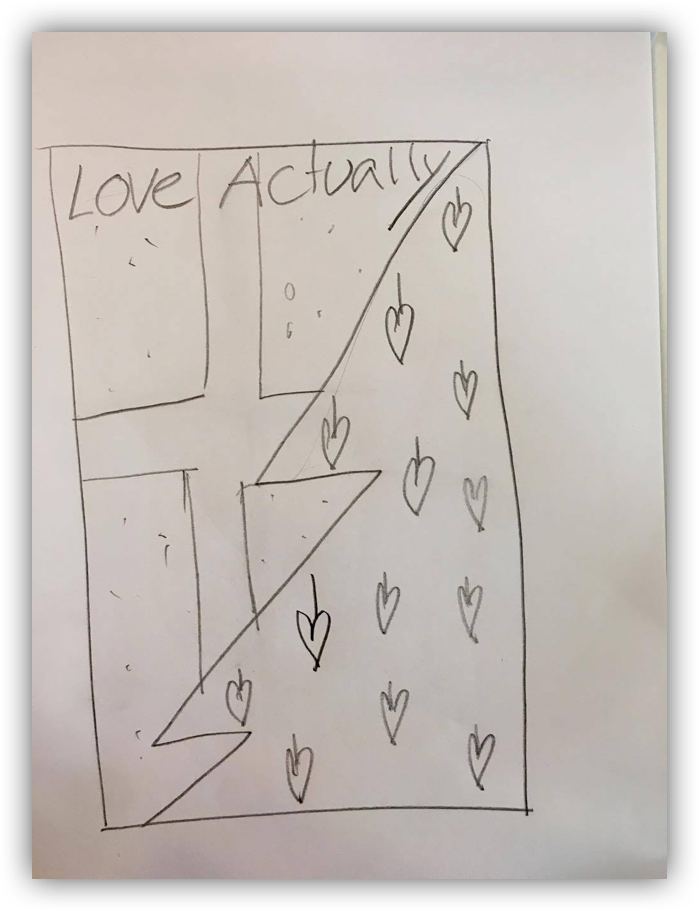 Love Actually